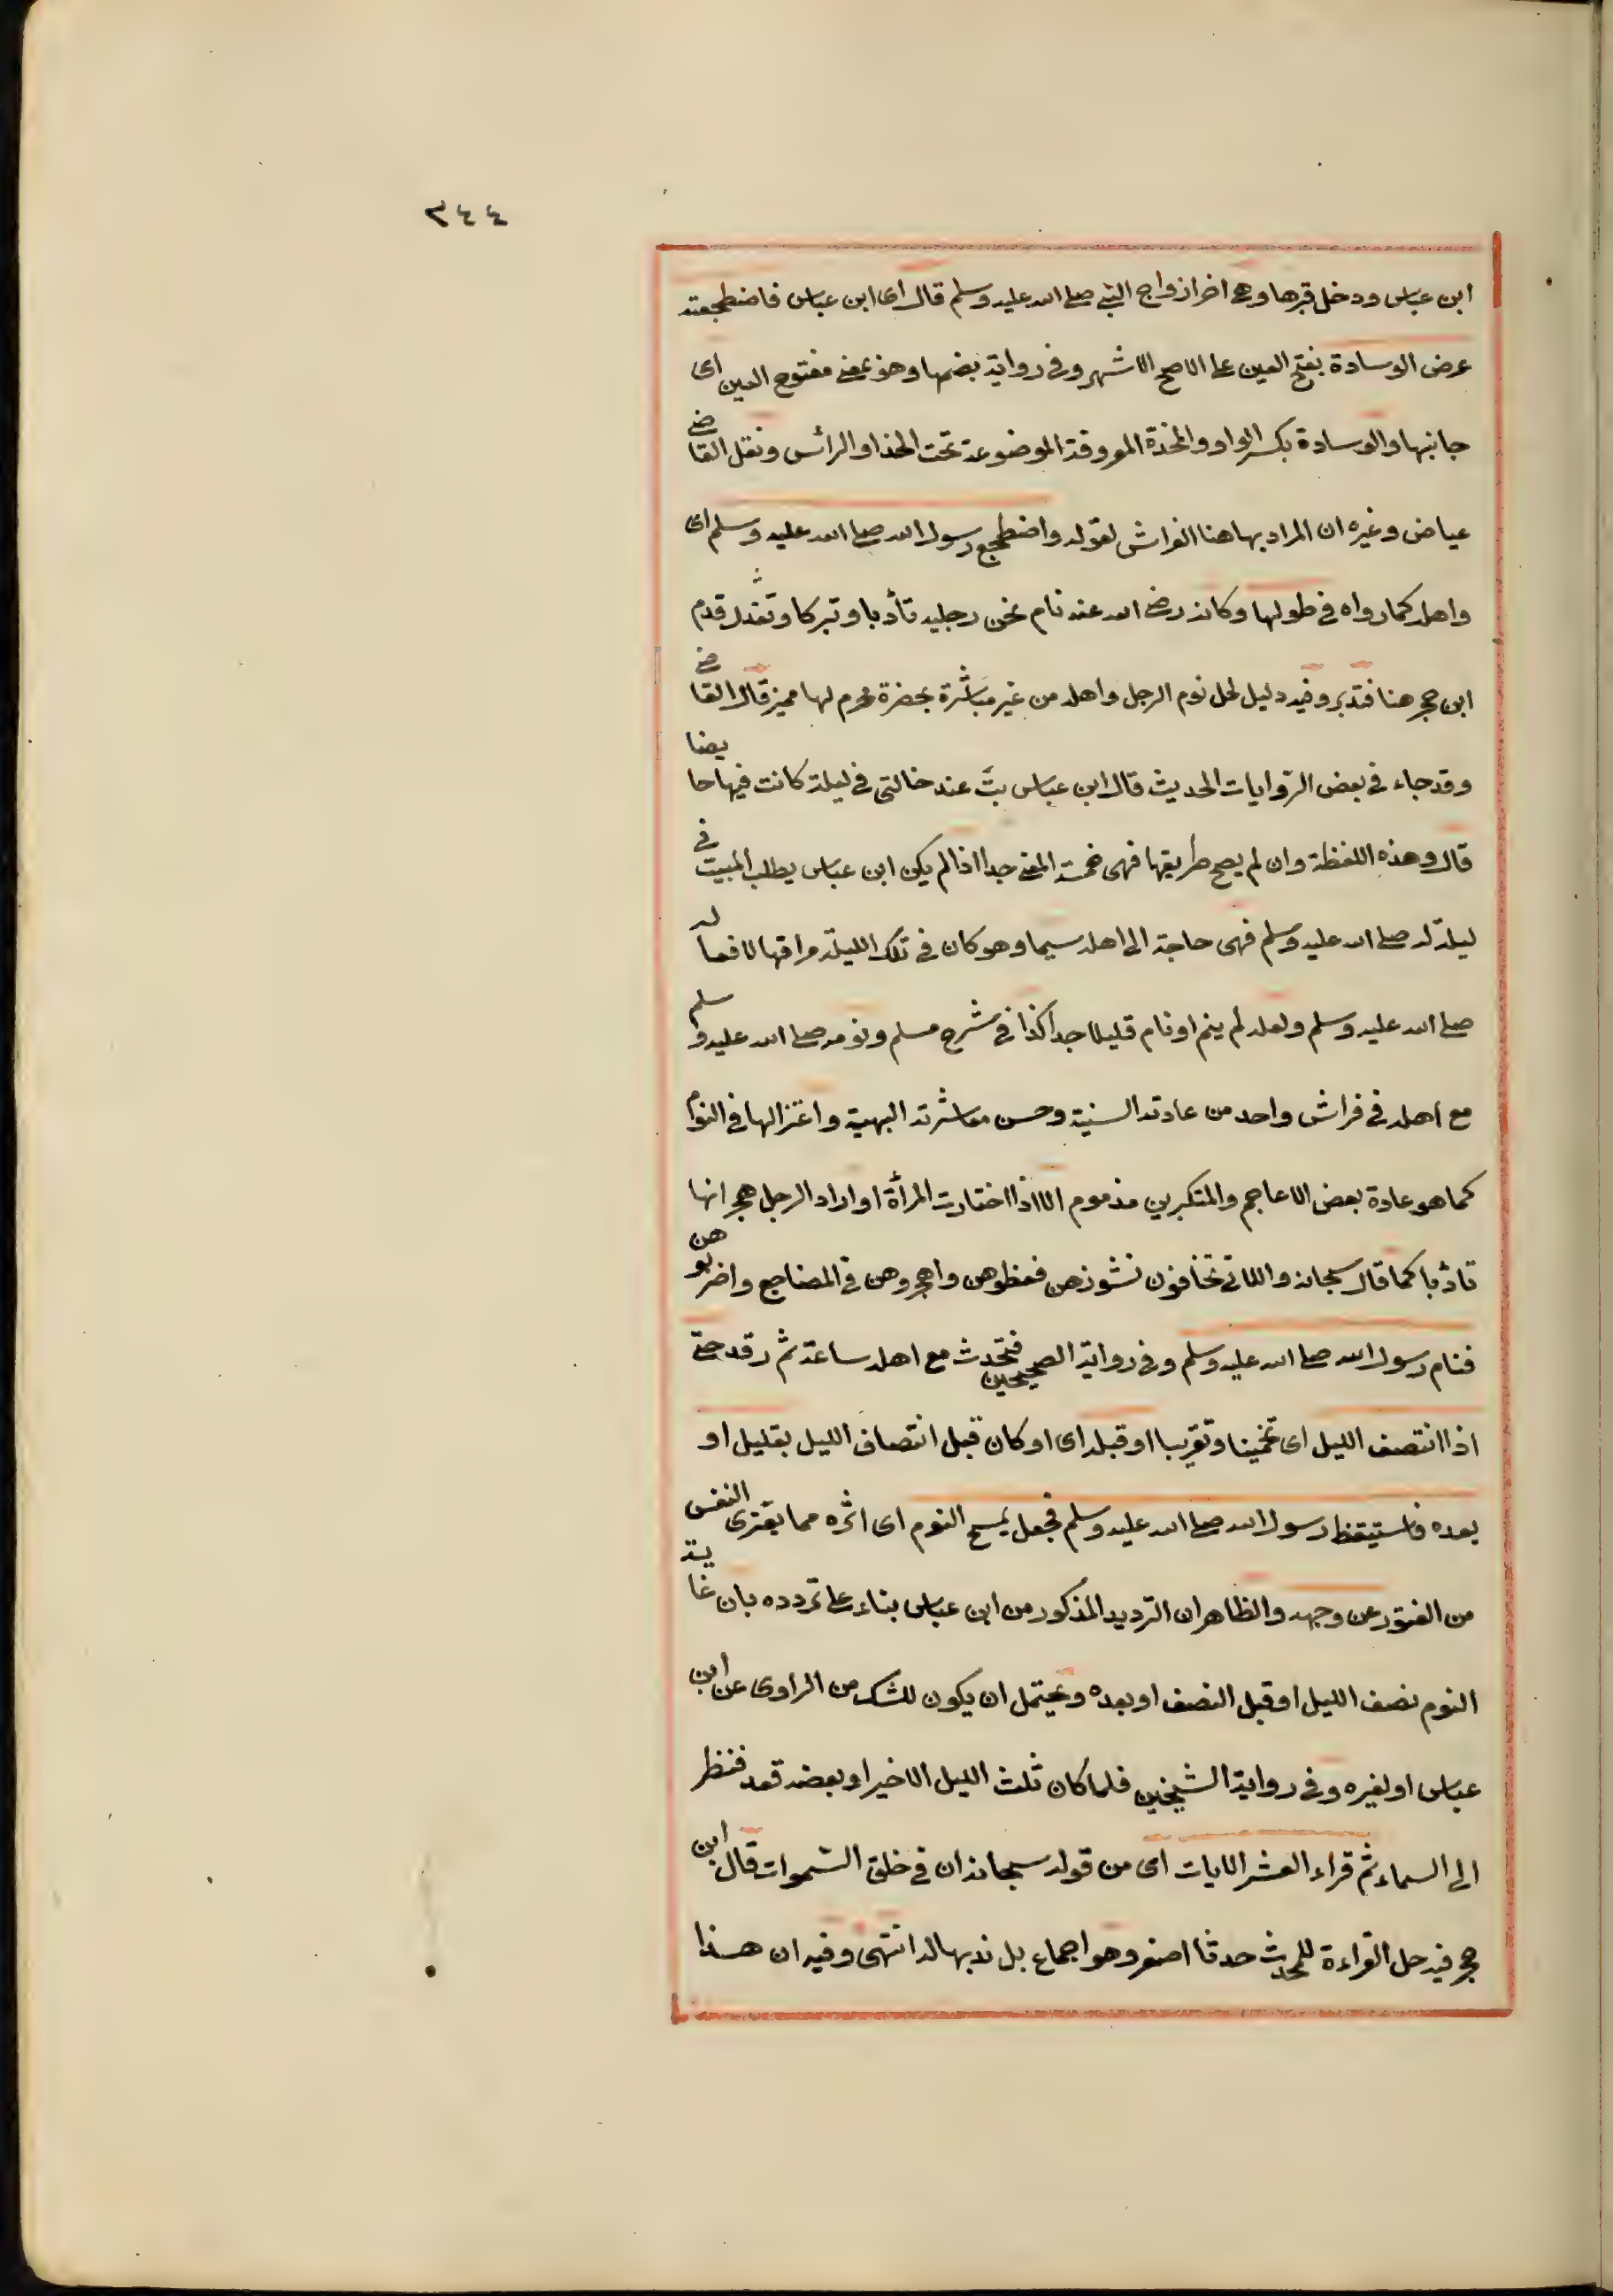 ٣٤٤
ابن عباس ودخل قبرها وهى اخر ازواج النبى صلى الله عليه وسلم قال اى ابن عباس فاضطجعت
عرض الوسادة بفتح العين على الاصح الاشهر وفى رواية بضمها وهو بمعنى مفتوح العين اى
جانبها والوسادة بكسر الواو والمخدة المعروفة الموضوعة تحت الخد او الرأس ونقل القاضى
عياض وغيره ان المراد بها هنا الفراش لقوله واضطجع رسول الله صلى الله عليه وسلم اى
واهله كما رواه فى طولها وكانه رضى الله عنه نام نحن رجليه تأدبا وتبركا وتعذر قدم
ابن حجر هنا فتدبر وفيه دليل لحل نوم الرجل واهله من غير مباشرة بحضرة محرم لها مميز قال القاضى
وقد جاء فى بعض الروايات الحديث قال ابن عباس بتّ عند خالتى فى ليلة كانت فيها حايضا
قال وهذه اللفظة وان لم يصح طريقها فهى المعنى جدا اذا لم يكن ابن عباس يطلب المبيت فى
ليلة له صلى الله عليه وسلم فهى حاجة الى اهله سيما وهو كان فى تلك الليلة مراقبا لافعاله
صلى الله عليه وسلم ولعله لم ينم او نام قليلا جدا كذا فى شرح مسلم ونومه صلى الله عليه وسلم
مع اهله فى فراش واحد من عادته السنية وحسن معاشرته البهية واعتزالها فى النوم
كما هو عادة بعض الاعاجم والمتكبرين مذموم الا اذا اختارت المرأة او اراد الرجل هجرانها
تأدبا كما قال سبحانه واللاتى تخافون نشوزهن فعظوهن واهجروهن فى المضاجع واضربوهن
فنام رسول الله صلى الله عليه وسلم وفى رواية الصحيحين فتحدث مع اهله ساعة ثم رقد حتى
اذا انتصف الليل اى تخمينا وتقريبا او قبله اى او كان قبل انتصاف الليل بقليل او
بعده فاستيقظ رسول الله صلى الله عليه وسلم فجعل يمسح النوم اى اثره مما يعترى النفس
من الفتور عن وجهه والظاهر ان الترديد المذكور من ابن عباس بناء على تردده بان غاية
النوم نصف الليل او قبل النصف او بعده ويحتمل ان يكون للشك من الراوى عن ابن
عباس او لغيره وفى رواية الشيخين فلما كان ثلث الليل الاخير او بعضه قعد فنظر
الى السماء ثم قراء العشر الايات اى من قوله سبحانه ان فى خلق السموات قال ابن
حجر فيه حل القراءة للمحدث حدثا اصغر وهو اجماع بل ندبها له انتهى وفيه ان هذا